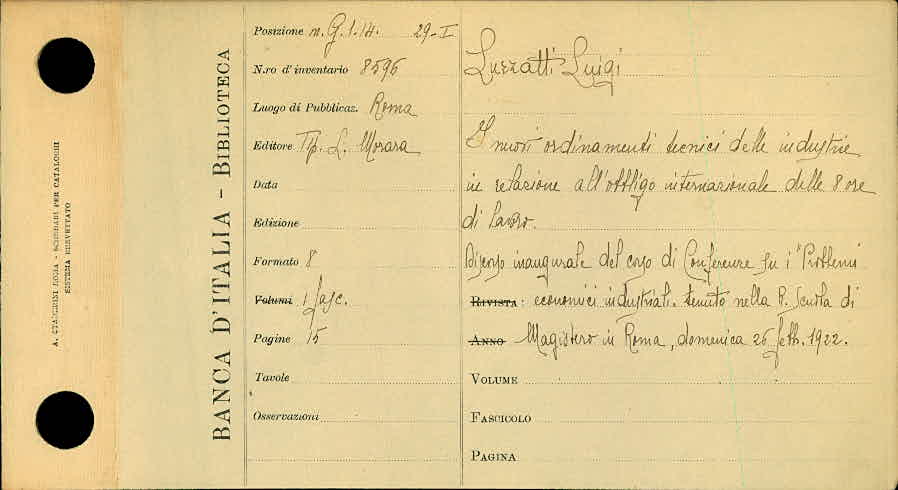 A. STADERINI ROMA - SCHEDARI PER CATALOGHI
SISTEMA BREVETTATO
BANCA D'ITALIA - BIBLIOTECA
Posizione n. G. 1. 14. 29-I
N.ro d'inventario 8596
Luogo di Pubblicaz. Roma
Editore Tip. L. Morara
Data
Edizione
Formato 8
Volumi 1 fasc.
Pagine 15
Tavole
Osservazioni
Luzzatti Luigi
I nuovi ordinamenti tecnici delle industrie
in relazione all'obbligo internazionale delle 8 ore
di lavoro.
Discorso inaugurale del corso di Conferenze su i "Problemi
RIVISTA: economici industriali. tenuto nella R. Scuola di
ANNO Magistero in Roma, domenica 26 febb. 1922.
VOLUME
FASCICOLO
PAGINA